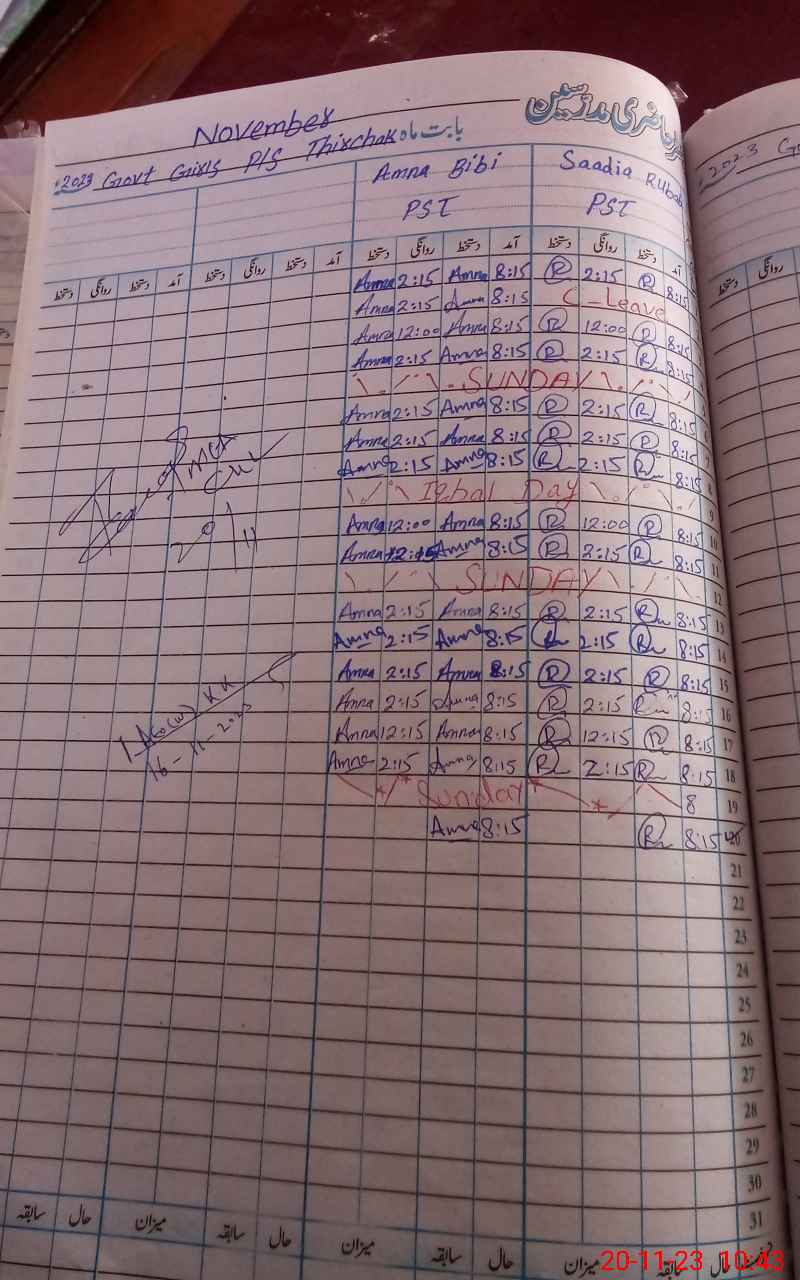 حاضری مدرسین
November بابت ماہ
2023 Govt Girls P/S Thixchak
Amna Bibi Saadia Rubab
PST PST
آمد دستخط روانگی دستخط آمد دستخط روانگی دستخط آمد دستخط روانگی دستخط آمد دستخط روانگی دستخط
Amna 2:15 Amna 8:15 R 2:15 R 8:15
Amna 2:15 Amna 8:15 C-Leave
Amna 12:00 Amna 8:15 R 12:00 R 8:15
Amna 2:15 Amna 8:15 R 2:15 R 8:15 4
SUNDAY 5
Amna 2:15 Amna 8:15 R 2:15 R 8:15 6
Amna 2:15 Amna 8:15 R 2:15 R 8:15 7
Amna 2:15 Amna 8:15 R 2:15 R 8:15 8
Iqbal Day 9
Amna 12:00 Amna 8:15 R 12:00 R 8:15 10
Amna 12:15 Amna 8:15 R 2:15 R 8:15 11
SUNDAY 12
Amna 2:15 Amna 8:15 R 2:15 R 8:15 13
Amna 2:15 Amna 8:15 R 2:15 R 8:15 14
Amna 2:15 Amna 8:15 R 2:15 R 8:15 15
Amna 2:15 Amna 8:15 R 2:15 R 8:15 16
Amna 12:15 Amna 8:15 R 12:15 R 8:15 17
Amna 2:15 Amna 8:15 R 2:15 R 8:15 18
Sunday 8 19
Amna 8:15 R 8:15 20
21
22
23
24
25
26
27
28
29
30
31
20/11
16-11-2023
سابقہ حال میزان سابقہ حال میزان سابقہ حال میزان سابقہ حال
2023
روانگی
دستخط
20-11-23 10:43